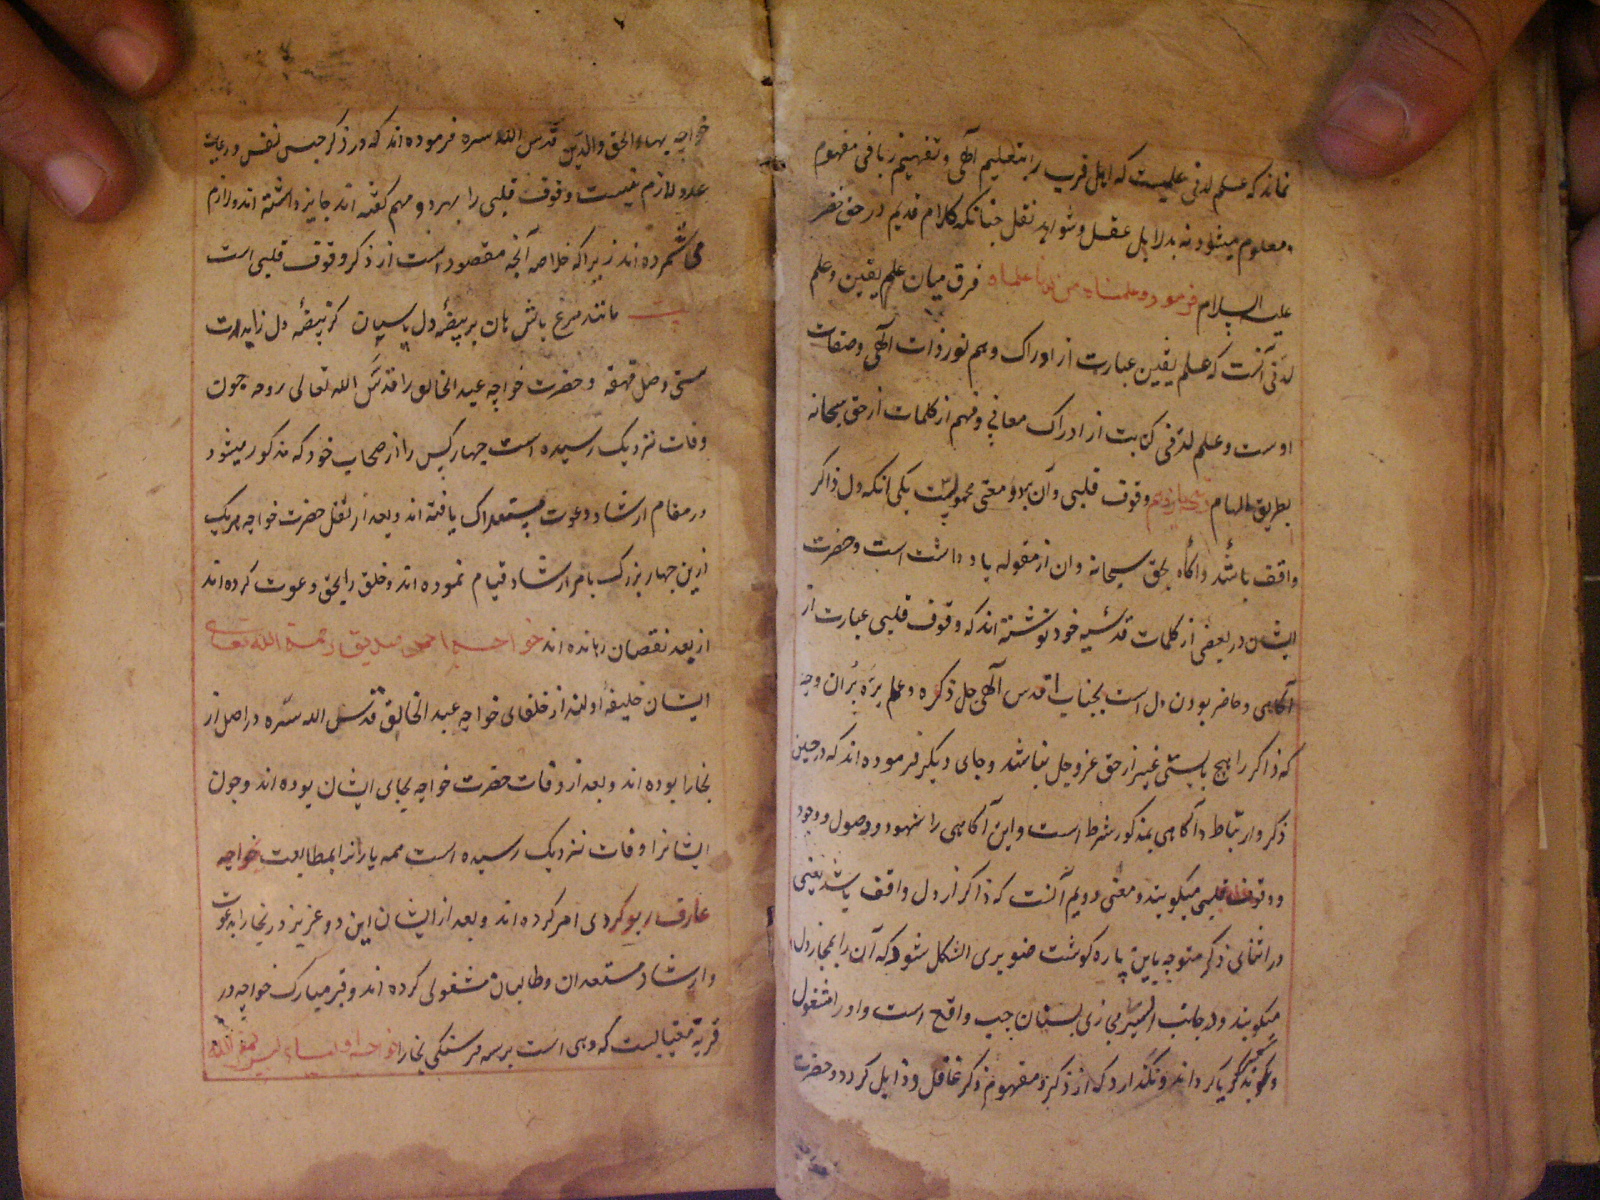 نماند که علم لدنی علمیست که اهل قرب را بتعلیم آلهی و تفهیم ربانی مفهوم
و معلوم میشود نه بدلایل عقل و شواهد نقل چنانکه کلام قدیم در حق خضر
علیه السلام فرمود و علمناه من لدنا علما و فرق میان علم یقین و علم
لدنی آنست که علم یقین عبارت از ادراک و هم نور ذات آلهی و صفات
اوست و علم لدنی کنایت از ادراک معانی و فهم از کلمات از حق سبحانه
بطریق الهام وقوف قلبی و آن بر دو معنی محمولست یکی آنکه دل ذاکر
واقف باشد و آگاه بحق سبحانه و ان از مقوله یاد داشت است و حضرت
ایشان در بعضی از کلمات قدسیه خود نوشته اند که وقوف قلبی عبارت از
آگاهی و حاضر بودن دل است بجناب اقدس آلهی جل ذکره بران وجه
که ذاکر را هیچ بایستی غیر از حق عز و جل نباشد و جای دیگر فرموده اند که در حین
ذکر و ارتباط و آگاهی بمذکور شرط است و این آگاهی را شهود و وصول و وجود
و وقوف قلبی میگویند و معنی دویم آنست که ذاکر از دل واقف باشد یعنی
در اثنای ذکر متوجه باین پاره گوشت صنوبری الشکل شود که آن را بمجاز دل
میگویند و در جانب ایسر محاذی پستان چپ واقع است و او را مشغول
و گویا بذکر گرداند و نگذارد که از ذکر و مفهوم ذکر غافل و ذاهل گردد و حضرت
خواجه بهاء الحق والدین قدس الله سره فرموده اند که در ذکر حبس نفس و رعایت
عدد لازم نیست و وقوف قلبی را بهر دو مهم گفته اند جایز داشته اند و لازم
می شمرده اند زیرا که خلاصه آنچه مقصود است از ذکر وقوف قلبی است
بیت مانند مرغ باش هان بر بیضهٔ دل پاسبان کز بیضهٔ دل زایدت
مستی و وصل و قهقهه و حضرت خواجه عبد الخالق را قدس الله تعالی روحه چون
وفات نزدیک رسیده است چهار کس را از صحاب خود که مذکور میشود
در مقام ارشاد و دعوت یافته اند و بعد از نقل حضرت خواجه هر یک
ازین چهار بزرگ بامر ارشاد قیام نموده اند و خلق را بحق دعوت کرده اند
از بعد نقصان رهانده اند خواجه احمد صدیق رحمة الله تعالی
ایشان خلیفهٔ اولند از خلفای خواجه عبد الخالق قدس الله سره در اصل از
بخارا بوده اند و بعد از وفات حضرت خواجه بجای ایشان بوده اند و چون
ایشانرا وفات نزدیک رسیده است همه یارانرا بمطابعت خواجه
عارف ریوکردی امر کرده اند و بعد از ایشان این دو عزیز در بخارا بدعوت
و ارشاد مستعدان و طالبان مشغولی کرده اند و قبر مبارک خواجه در
قریهٔ مغیانست که دهی است بر سه فرسنگی بخارا خواجه اولیاء کبیر رحمه الله